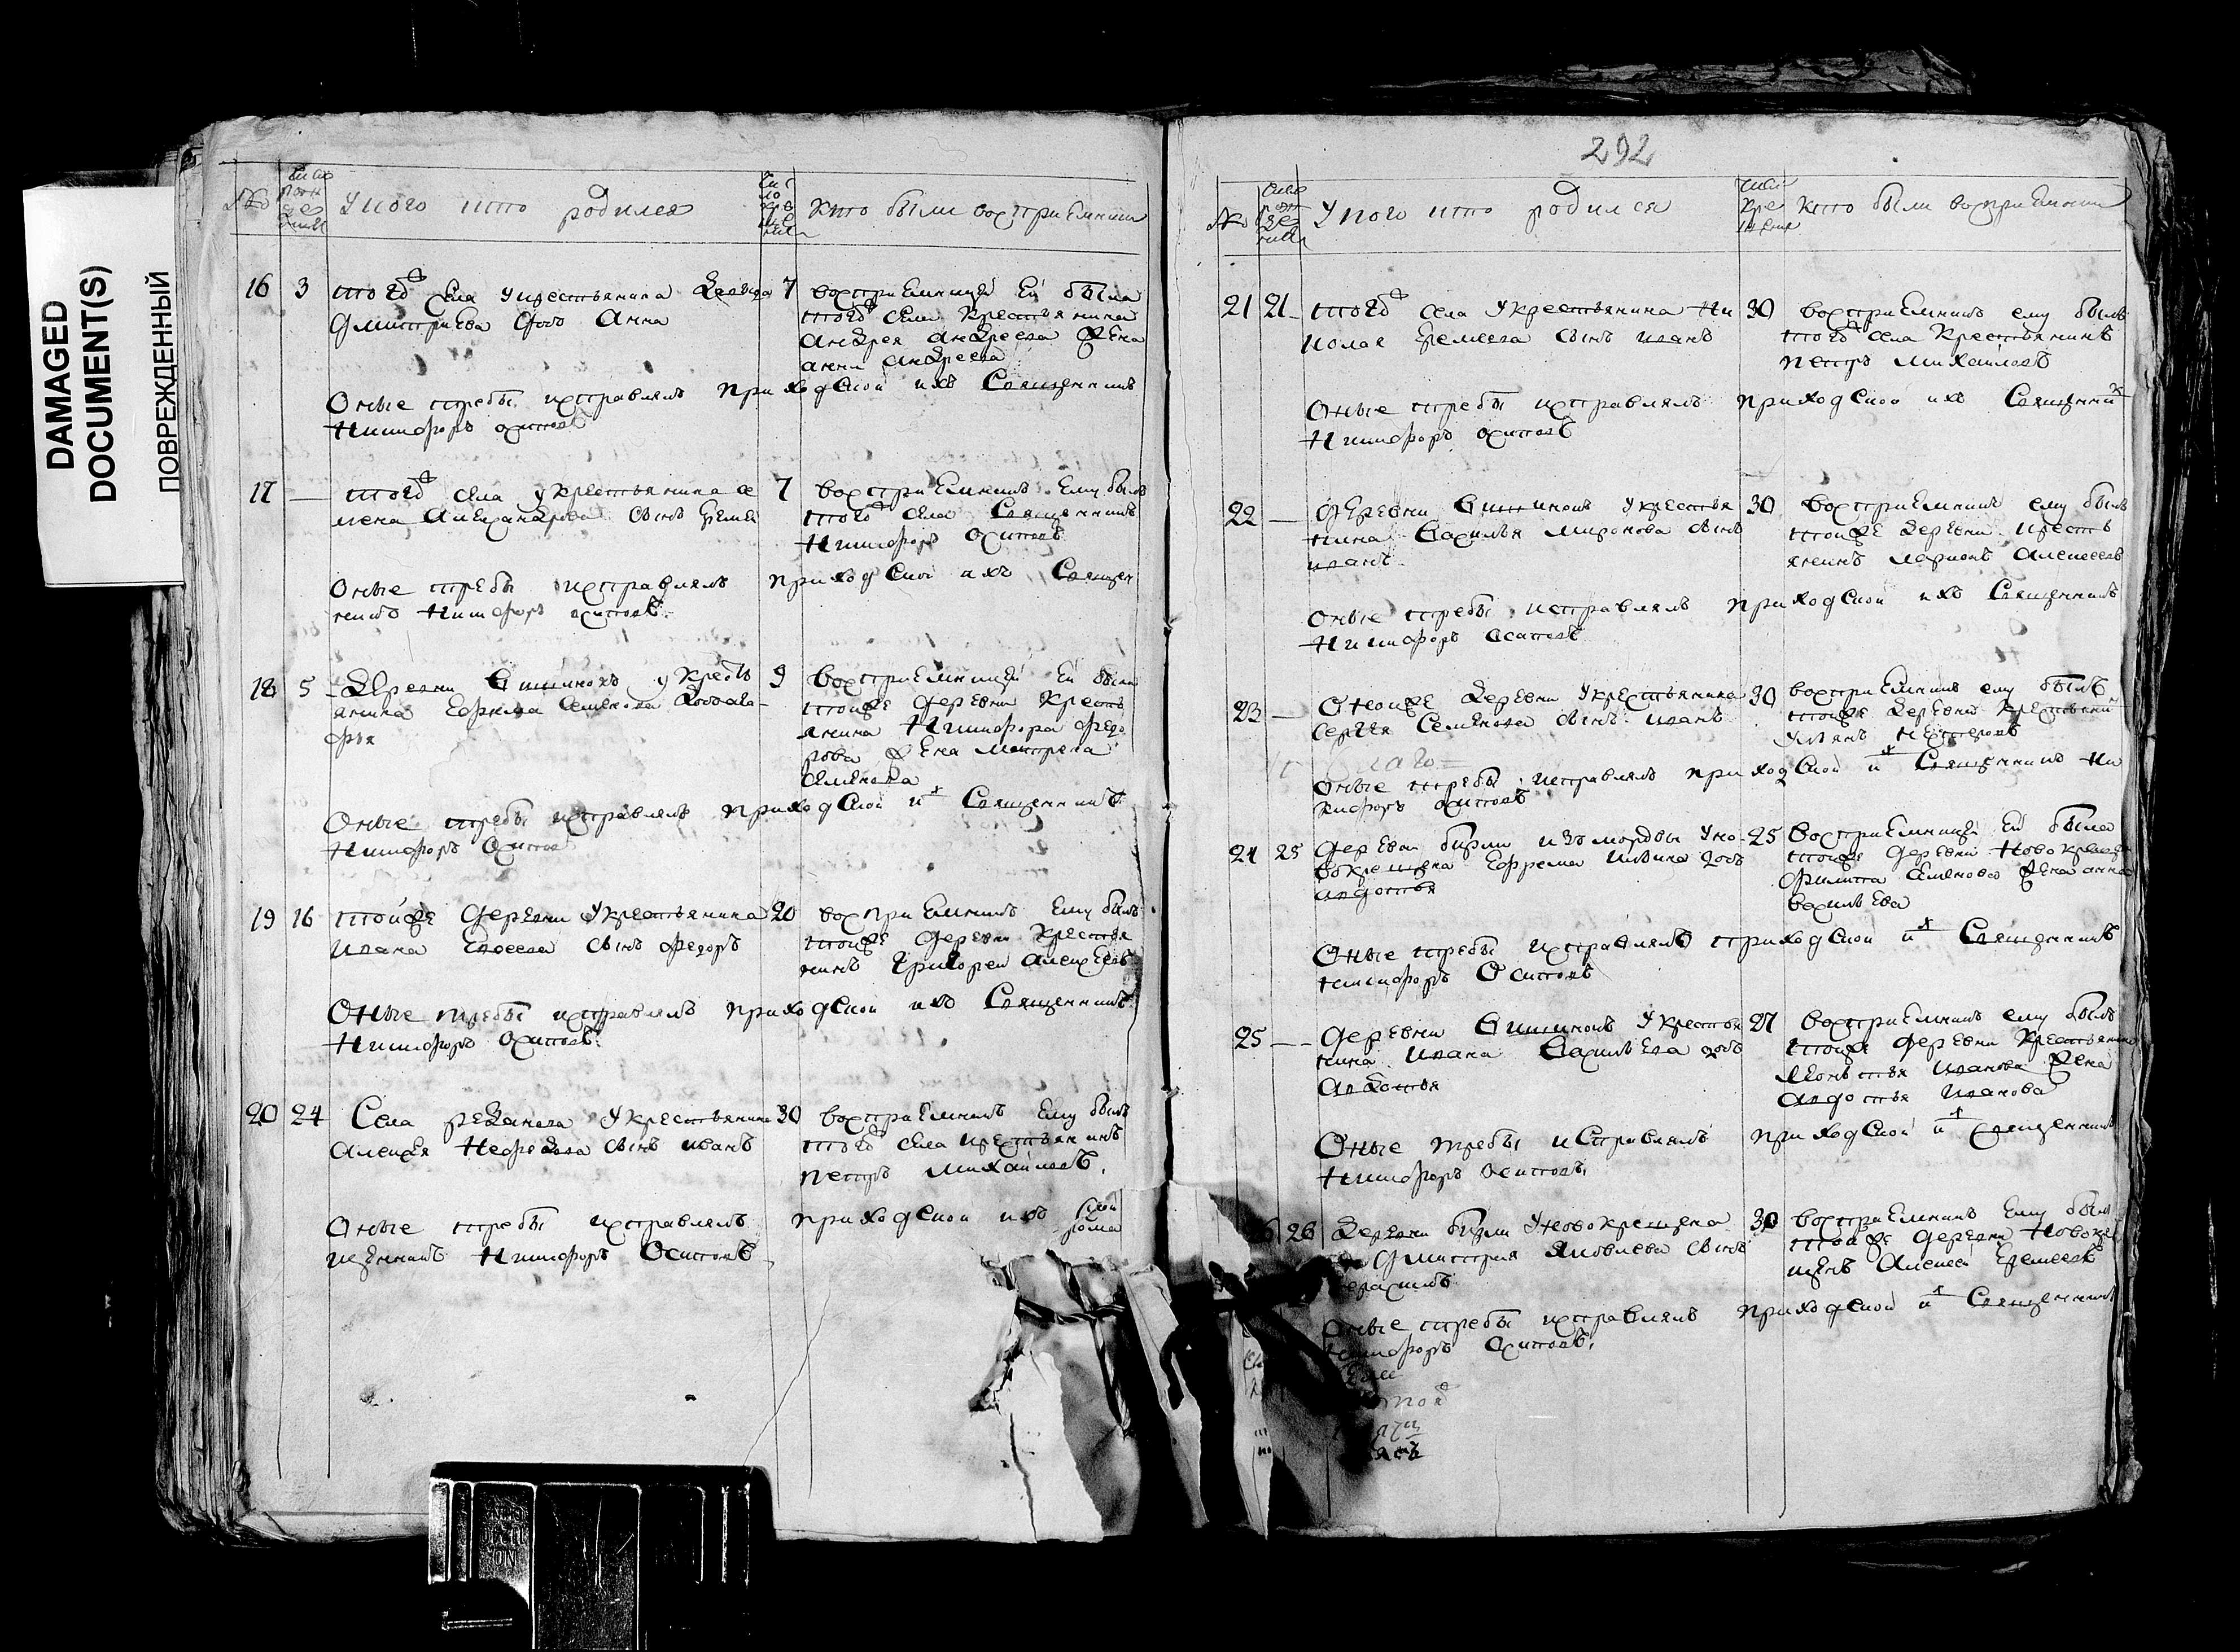 DAMAGED
DOCUMENT(S)
ПОВРЕЖДЕННЫЙ
№
число рож де ния
У кого кто родился
Чис ло кре ще ния
кто были восприемники
16 3 того села у крестьянина
Дмитриева дочь Анна
7 восприемницей ей была
того села крестьянина
Андрея Андреева жена
анна Андреева
Оные требы исправлялъ приходской ихъ Священникъ
Никифоръ осиповъ
17 — того села у крестьянина се
мена Александрова сынъ
7 восприемникъ ему былъ
того села Священникъ
Никифоръ Осиповъ
Оные требы исправлялъ приходской ихъ Священ
никъ Никифоръ осиповъ
18 5 Деревни у кресть
янина Ефрема Семенова
9 восприемницей ей была
тойже деревни кресть
янина Никифора федо
рова жена матрена
семенова
Оные требы исправлялъ приходской их Священникъ
Никифоръ Осиповъ
19 16 тойже деревни у крестьянина
ивана сынъ федоръ
20 восприемникъ ему былъ
тойже деревни крестья
нинъ григореи алексеевъ
Оные требы исправлялъ приходской ихъ Священникъ
Никифоръ Осиповъ
20 24 Села у крестьянина
алексея сынъ иванъ
30 восприемникъ ему былъ
того села крестьянинъ
петръ михайловъ
Оные требы исправлялъ приходской ихъ
щенникъ Никифоръ Осиповъ
292
№
число рож де ния
У кого кто родился
число кре щения
кто были восприемники
21 21 того села у крестьянина ни
колая еремеева сынъ иванъ
30 восприемникъ ему былъ
того села крестьянинъ
петръ михайловъ
Оные требы исправлялъ приходской ихъ Священник
Никифоръ осиповъ
22 — деревни у крестья
нина василья миронова сынъ
иванъ
30 восприемникъ ему былъ
тойже деревни кресть
янинъ ларионъ алексеевъ
Оные требы исправлялъ приходской ихъ Священникъ
Никифоръ осиповъ
23 — Оноиже деревни у крестьянина
сергея Семенова сынъ иванъ
30 восприемникъ ему былъ
тойже деревни крестьянин
Оные требы исправлялъ приходской их Священникъ ни
кифоръ осиповъ
24 25 деревни бирли изъ мордвы у но
вокрещена ефрема дочь
авдотья
25 восприемницей ей была
тойже деревни новокрещен
филипа семенова жена анна
васильева
Оные требы исправлялъ приходской их Священникъ
никифоръ Осиповъ
25 — деревни у крестья
нина ивана васильева дочь
авдотья
27 восприемникъ ему былъ
тойже деревни крестьянина
иванова жена
авдотья иванова
Оные требы исправлялъ приходской их священникъ
Никифоръ осиповъ
26 деревни бирли у новокрещена
дмитрия яковлева сынъ
30 восприемникъ ему былъ
тойже деревни новокре
щенъ алексей еремеевъ
Оные требы исправлялъ приходской их Священникъ
Никифоръ Осиповъ